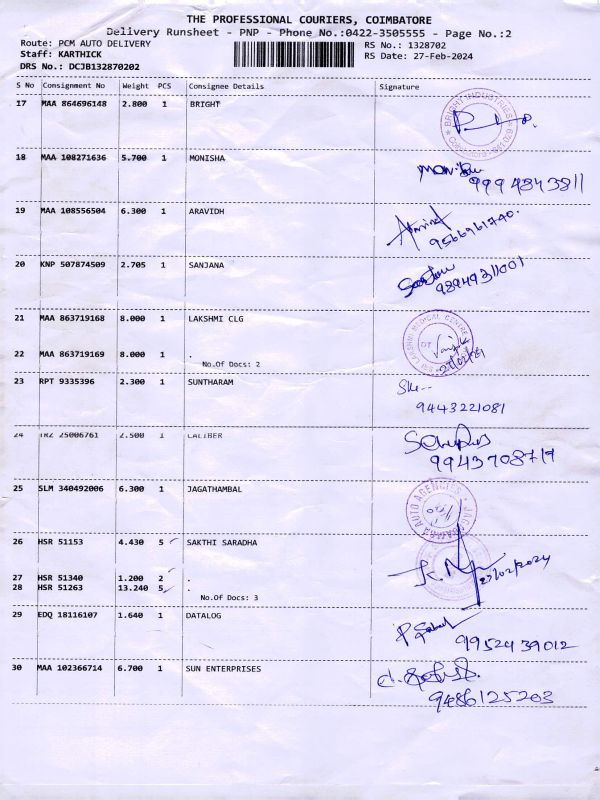 THE PROFESSIONAL COURIERS, COIMBATORE
Delivery Runsheet - PNP - Phone No.:0422-3505555 - Page No.:2
Route: PCM AUTO DELIVERY
RS No.: 1328702
Staff: KARTHICK
RS Date: 27-Feb-2024
DRS No.: DCJB132870202
S No Consignment No Weight PCS Consignee Details Signature
17 MAA 864696148 2.800 1 BRIGHT
BRIGHT INDUSTRIES
18 MAA 108271636 5.700 1 MONISHA
9994843811
19 MAA 108556504 6.300 1 ARAVIDH
9566961740.
20 KNP 507874509 2.705 1 SANJANA
98949311001
21 MAA 863719168 8.000 1 LAKSHMI CLG
LAKSHMI MEDICAL CENTRE
22 MAA 863719169 8.000 1 .
No.Of Docs: 2
23 RPT 9335396 2.300 1 SUNTHARAM
9443221081
24 TRZ 25006761 2.500 1 CALIBER
25 SLM 340492006 6.300 1 JAGATHAMBAL
AUTO AGENCIES
26 HSR 51153 4.430 5 SAKTHI SARADHA
27/02/2024
27 HSR 51340 1.200 2 .
28 HSR 51263 13.240 5 .
No.Of Docs: 3
29 EDQ 18116107 1.640 1 DATALOG
9952439012
30 MAA 102366714 6.700 1 SUN ENTERPRISES
9486125203